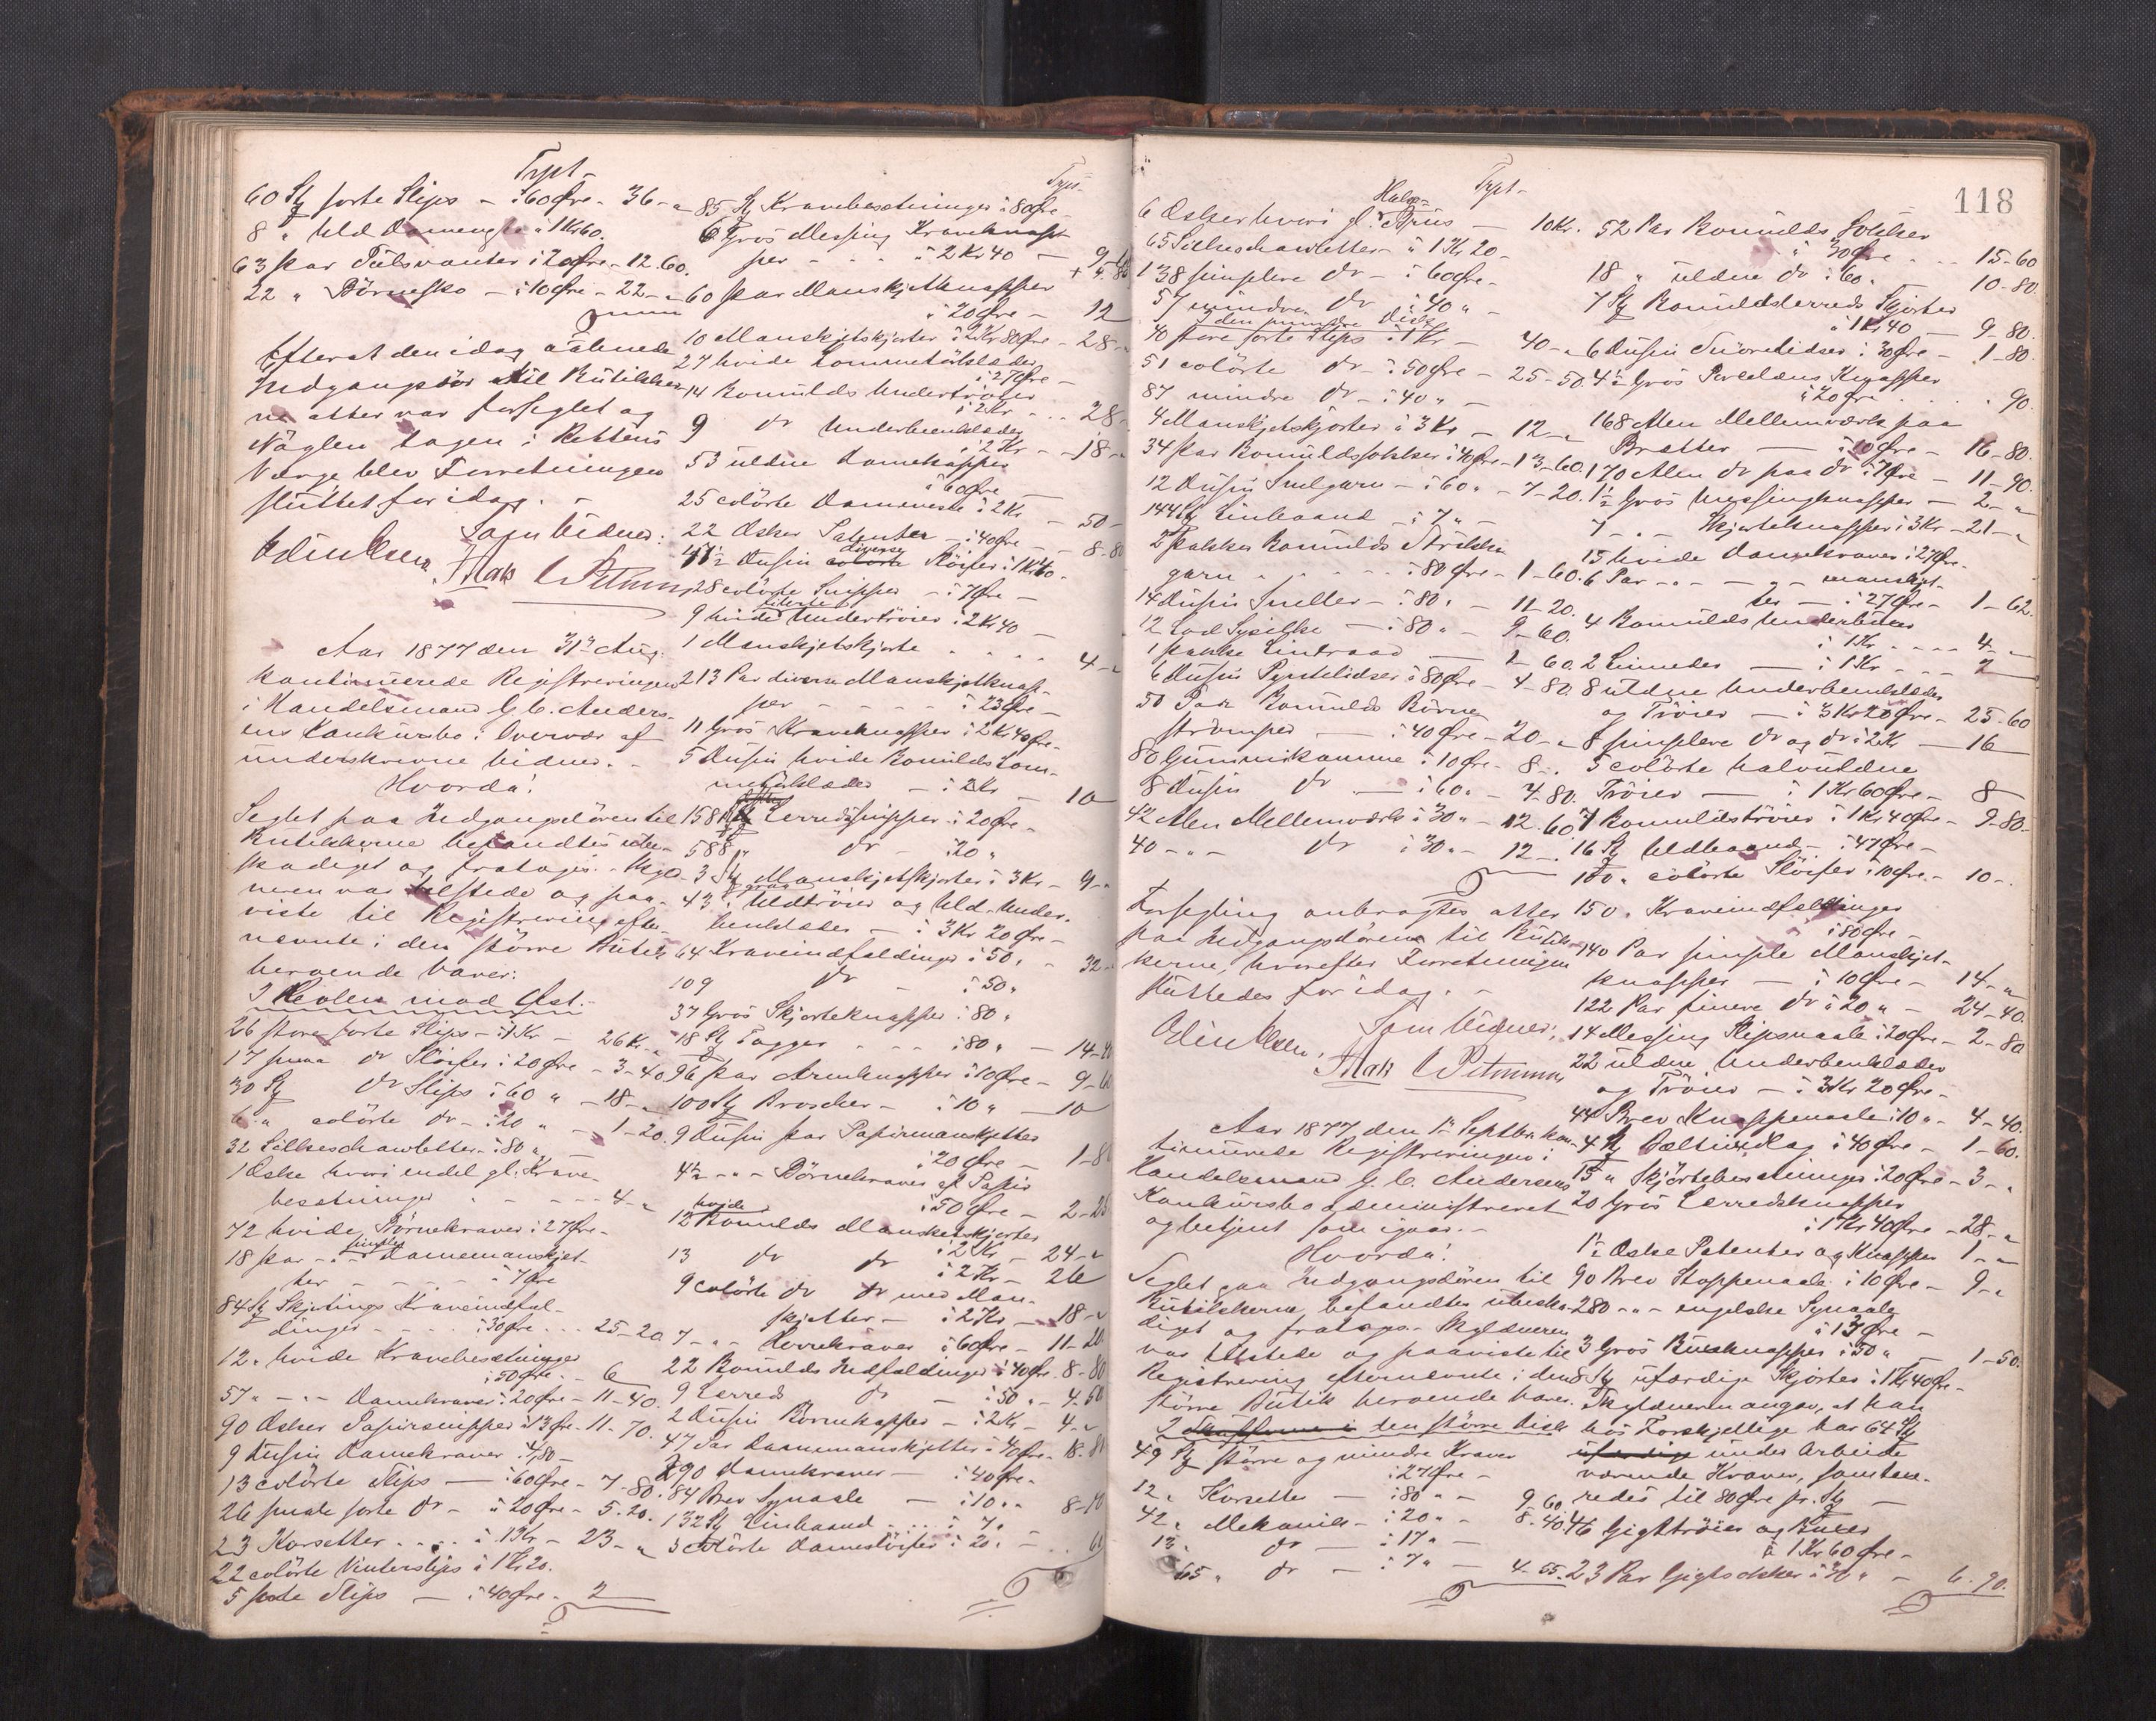 Trpt -
60 St sorte Slips - à 60 Øre - 36 - "
8 " Uld à 1 Kr 60.
63 par Tülsvanter à 20 Øre - 12.60.
22 " Börnesko - à 10 Øre - 22 - "
Efterat den idag aabnede
Indgangsdör til Butikker-
ne atter var forseglet og
Nöglen tagen i Rettens
Værge blev Forretningen
sluttet for idag. -
Som Vidner:
Aar 1877 den 31te Aug.
kontinuerede Registreringen
i Handelsmand G. C. Anders-
ens Konkursbo i Overvær af
underskrevne Vidner. -
Hvorda!
Seglet paa Indgangsdören til
Butikkerne befandtes ube-
skadiget og fratoges. -
var tilstede og paa-
viste til Registrering efter-
nævnte i den större Butik
beroende Varer:
I Reolen mod Øst. -
26 store sorte Slips - à 1 Kr - 26 Kr. "
17 smaa do Slöifer à 20 Øre - 3 - 40
30 St do Slips à 60 " - 18 - "
6 " colörte do - à 20 " - 1 - 20.
32 Silkeschawletter - à 80 "
1 Æske hvori endel gl. Krave-
besætninger - - - - 4 - "
72 hvide Börnekraver à 27 Øre -
18 par - " - simple Damemanskjet-
ter - - - - à 7 Øre
84 St Skjetings Kraveindfal-
dinger - - - à 30 Øre - - - 25 - 20
12 " hvide Kravebesætninger
à 50 Øre - - 6
57 " - " - Damekraver à 20 Øre - 11 - 40.
90 Æsker Papirsnipper à 13 Øre - 11 - 70.
9 Dusin Damekraver 4,80 -
13 colörte Slips - à 60 Øre - 7 - 80.
26 smale sorte do - à 20 Øre - 5.20.
23 Korsetter . . . . à 1 Kr - 23 - "
22 colörte Vinterslips à 1 Kr 20.
5 sorte Slips - à 40 Øre - 2
85 St Kravebesætninger à 80 Øre -
Gros Messing Kraveknap-
per - - - à 2 Kr 40 -
60 par Manskjetknapper
à 20 Øre - 12
10 Manskjetskjorter à 2 Kr 80 Øre - 28 - "
24 hvide Lommetörklæder
à 27 Øre -
14 Bomulds Undertröier
à 2 Kr - - - 28 -
9 do Underbenklæder
à 2 Kr - - 18 - "
53 uldne Damekapper
à 60 Øre -
25 colörte Dameveste à 2 Kr - 50 -
22 Æsker Patenter - à 40 Øre - 8 - 80
Dusin diverse Slöifer à 1 Kr 40 -
28 colörte Snipper - à 7 Øre -
9 Undertröier à 2 Kr 40 -
1 Manskjetskjorte . . . . 4 - "
213 Par diverse Manskjetknap-
per - - - - à 23 Øre -
11 Gros Kraveknapper à 2 Kr 40 Øre -
5 Dusin hvide Bomulds Lom-
metörklæder - à 2 Kr - 10
158 Lerredssnipper à 20 Øre -
588 " do - à 20 "
3 St Manskjetskjorter à 3 Kr - 9 - "
43 " Uldtröier og Uld-Under-
benklæder - à 3 Kr 20 Øre -
64 Kraveindfaldinger à 50 " - 32 - "
109 do - à 50 "
37 Gros Skjorteknapper à 80 "
18 St Tagger - - - à 80 " - 14 - 40
96 par Armknapper à 10 Øre - 9 - 60
100 St Broscher - à 10 " - 10
9 Dusin par Papirmanskjetter
à 20 Øre - 1 - 80
4½ - " - Börnekraver af Papir
à 50 Øre - 2 - 25
12 hvide Bomulds Manskjetskjorter
à 2 Kr - 24 - "
13 do do à 2 Kr - 26
9 colörte do do med Man-
skjetter - à 2 Kr - 18 - "
7 - " - Herrekraver à 60 Øre - 11 - 20
22 Bomulds Indfaldinger à 40 Øre. 8 - 80
9 Lerreds do - à 50 " - 4 - 50
2 Dusin Börnekapper - à 2 Kr - 4 - "
47 Par Damemanskjetter à 40 Øre - 18 - 80
290 Damekraver - à 40 Øre -
84 Brev Synaale - à 10 " - 8 - 40
132 St Linbaand . . . à 7 "
3 colörte Dameslöifer à 20 " - . . 60
118
Trpt -
6 Æsker hvori gl. - 10 Kr.
65 Silkeschawletter - à 1 Kr 20 -
138 simplere do - à 60 Øre -
57 mindre do à 40 " -
40 store sorte Slips à 1 Kr - 40 - "
51 colörte do - à 50 Øre - 25 - 50.
87 mindre do - à 40 " -
4 Manskjetskjorter à 3 Kr - 12 - "
34 par Bomuldssokker à 40 Øre - 13 - 60.
12 Dusin Snelgarn - à 60 " - 7 - 20.
144 St Linbaand - à 7 " -
2 pakker Bomulds Strikke-
garn - - - - à 80 Øre - 1 - 60.
14 Dusin Sneller - à 80 " - 11 - 20.
12 Lod Sysilke - à 80 " - 9 - 60.
1 pakke Lintraad - 1 - 60.
6 Dusin Pyntelidser à 80 Øre - 4 - 80.
50 Par Bomulds Börne-
strömper - à 40 Øre - 20 - "
80 Gummikamme à 10 Øre - 8 - .
8 Dusin do - à 60 " - 4 - 80.
42 Alen Mellemværk à 30 " - 12.60
40 - " - do à 30 " - 12 - .
Forsegling anbragtes atter
paa Indgangsdörene til Butik-
kerne, hvorefter Forretningen
sluttedes for idag. -
Som Vidner:
Aar 1877, den 1te Septbr. kon-
tinuerede Registreringen i
Handelsmand G. C. Andersens
Konkursbo administreret
og betjent som igaar. -
Hvorda!
Seglet paa Indgangsdören til
Butikkerne befandtes ubeska-
diget og fratoges. - Skyldneren
var tilstede og paaviste til
Registrering efternævnte i den
större Butik beroende Varer.
I den större Disk
49 St större og mindre Kraver
à 27 Øre -
12 " Korsetter - à 80 " - 9 - 60.
42 " Mekanik - à 20 " - 8 - 40.
13 " do - à 17 " -
65 " do - à 7 " - 4 - 55.
52 Par Bomulds Sokker
à 30 Øre . . . 15 - 60
18 " uldne do à 60 " 10 - 80.
7 St Bomuldslerreds Skjorter
à 1 Kr 40 - 9 - 80.
6 Dusin Snörelidser à 30 Øre - 1 - 80.
4½ Gros Porcelæns Knapper
à 20 Øre . . . 90.
168 Alen Mellemværk paa
Bretter - à 10 Øre - 16 - 80.
170 Alen do paa do à 7 Øre - 11 - 90.
1½ Gros Messingknapper - 2 - "
7 - " - Skjorteknapper à 3 Kr - 21 - "
15 hvide Damekraver à 27 Øre -
6 Par - " - - " - manskjet-
ter - à 27 Øre - 1 - 62.
4 Bomulds Underbuxer
à 1 Kr . . . . 4 - "
2 Linneder - à 1 Kr - - - 2
8 uldne Underbenklæder
og Tröier - à 3 Kr 20 Øre - 25 - 60
8 simplere do og do à 2 Kr - 16
5 colörte halvuldne
Tröier - à 1 Kr 60 Øre - 8
7 Bomuldströier à 1 Kr 40 Øre - 9 - 80 -
16 St Uldbaand - à 47 Øre -
100 " colörte Slöifer à 10 Øre - 10 - .
150 " Kraveindfaldinger
à 80 Øre -
140 Par simple Manskjet-
knapper - à 10 Øre - 14 - "
122 Par finere do à 20 " - 24 - 40
14 Messing Slipsnaale à 20 Øre - 2 - 80
22 uldne Underbenklæder
og Tröier - à 3 Kr 20 Øre -
44 Brev Knappenaale à 10 " - 4 - 40.
4 St à 40 Øre - 1 - 60.
15 " Skjortebesætninger à 20 Øre - 3 - "
20 Gros Lerredsknapper
à 1 Kr 40 Øre - 28 - "
1½ Æske Patenter og Knapper 1 - "
90 Brev Stoppenaale à 10 Øre - 9 - "
280 - " - engelske Synaale
à 13 Øre -
3 Gros Buxeknapper à 50 " - 1 - 50.
8 St ufærdige Skjorter à 1 Kr 40 Øre -
Skyldneren angav, at han
hos Forskjellige har 64 St
under Arbeide
værende Kraver, som taxe-
redes til 80 Øre pr. St -
46 Gigttröier og Buxer
à 1 Kr 60 Øre -
23 Par Gigtsokker à 30 " - 6 - 90.